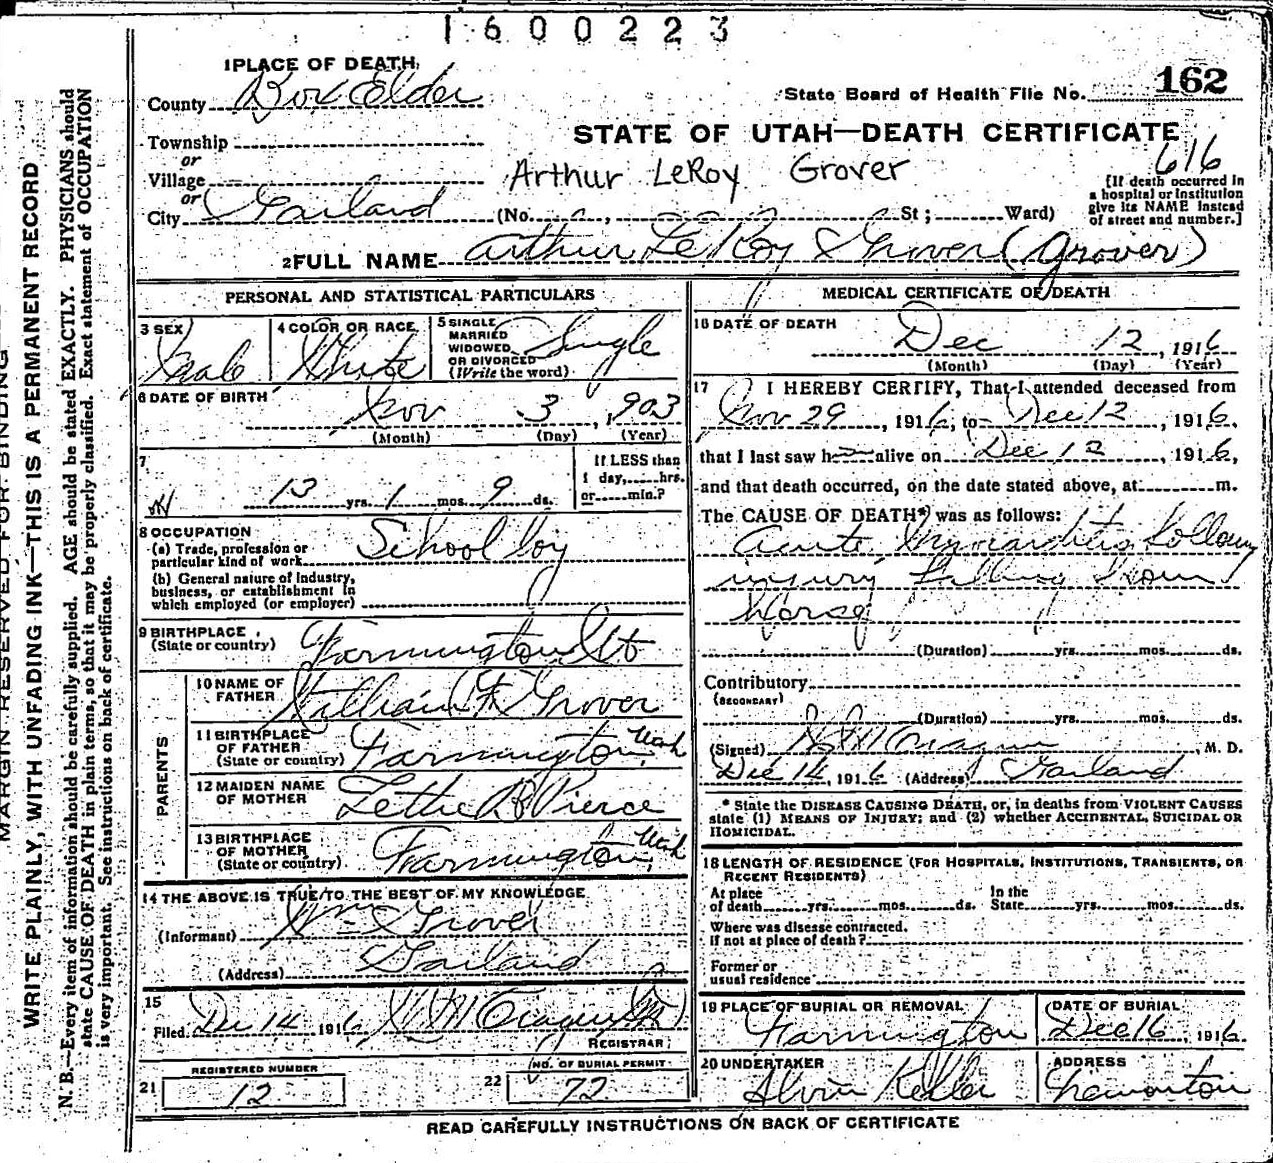 1600223
1 PLACE OF DEATH
County Box Elder
State Board of Health File No. 162
Township
STATE OF UTAH—DEATH CERTIFICATE
or
Village
Arthur LeRoy Grover
616
or
City Garland (No. St; Ward)
[If death occurred in
a hospital or institution
give its NAME instead
of street and number.]
2 FULL NAME Arthur LeRoy Grover (Grover)
PERSONAL AND STATISTICAL PARTICULARS
3 SEX Male
4 COLOR OR RACE White
5 SINGLE
MARRIED
WIDOWED
OR DIVORCED
(Write the word) Single
6 DATE OF BIRTH
Nov 3, 1903
(Month) (Day) (Year)
7
13 yrs. 1 mos. 9 ds.
If LESS than
1 day, hrs.
or min.?
8 OCCUPATION
(a) Trade, profession or
particular kind of work School boy
(b) General nature of industry,
business, or establishment in
which employed (or employer)
9 BIRTHPLACE
(State or country) Farmington Ut
PARENTS
10 NAME OF
FATHER William F Grover
11 BIRTHPLACE
OF FATHER
(State or country) Farmington, Utah
12 MAIDEN NAME
OF MOTHER Pierce
13 BIRTHPLACE
OF MOTHER
(State or country) Farmington, Utah
14 THE ABOVE IS TRUE TO THE BEST OF MY KNOWLEDGE
(Informant) Wm Grover
(Address) Garland
15
Filed Dec 14 1916
REGISTRAR
REGISTERED NUMBER
21 12
NO. OF BURIAL PERMIT
22 72
MEDICAL CERTIFICATE OF DEATH
16 DATE OF DEATH
Dec 12, 1916
(Month) (Day) (Year)
17 I HEREBY CERTIFY, That I attended deceased from
Nov 29, 1916, to Dec 12, 1916,
that I last saw h alive on Dec 12, 1916,
and that death occurred, on the date stated above, at m.
The CAUSE OF DEATH* was as follows:
Acute Myocarditis following
injury falling from
horse
(Duration) yrs. mos. ds.
Contributory
(SECONDARY)
(Duration) yrs. mos. ds.
(Signed) , M. D.
Dec 14, 1916 (Address) Garland
* State the DISEASE CAUSING DEATH, or, in deaths from VIOLENT CAUSES
state (1) MEANS OF INJURY; and (2) whether ACCIDENTAL, SUICIDAL OR
HOMICIDAL.
18 LENGTH OF RESIDENCE (FOR HOSPITALS, INSTITUTIONS, TRANSIENTS, OR
RECENT RESIDENTS)
At place
of death yrs. mos. ds.
In the
State yrs. mos. ds.
Where was disease contracted,
if not at place of death?
Former or
usual residence
19 PLACE OF BURIAL OR REMOVAL
Farmington
DATE OF BURIAL
Dec 16, 1916
20 UNDERTAKER
Alvin Keller
ADDRESS
READ CAREFULLY INSTRUCTIONS ON BACK OF CERTIFICATE
MARGIN RESERVED FOR BINDING
WRITE PLAINLY, WITH UNFADING INK—THIS IS A PERMANENT RECORD
N. B.—Every item of information should be carefully supplied. AGE should be stated EXACTLY. PHYSICIANS should
state CAUSE OF DEATH in plain terms, so that it may be properly classified. Exact statement of OCCUPATION
is very important. See instructions on back of certificate.